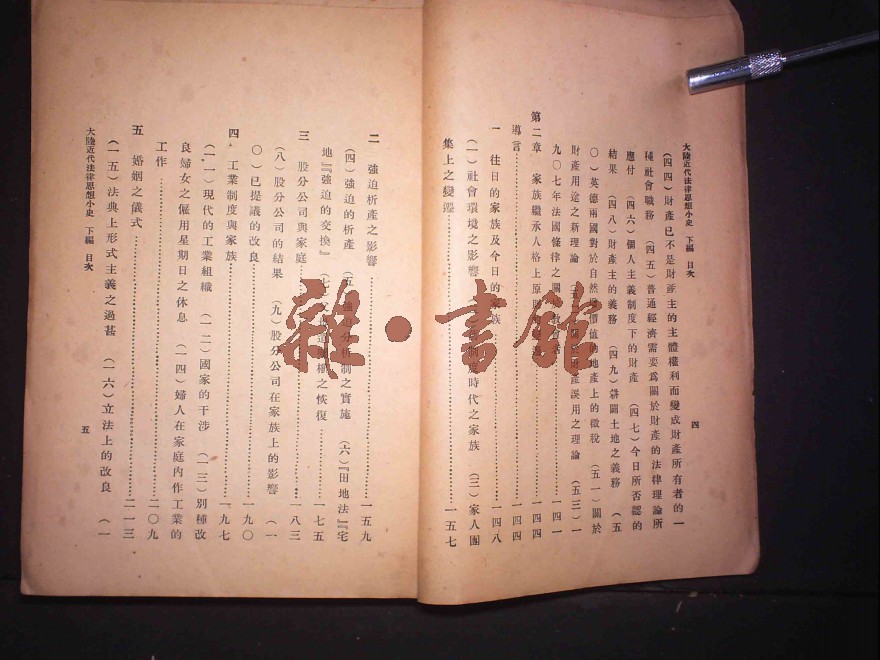 大陸近代法律思想小史　下編　目次
四
（四四）財產已不是財產主的主體權利而變成財產所有者的一
種社會職務　（四五）普通經濟需要爲關於財產的法律理論所
應付　（四六）個人主義制度下的財產　（四七）今日所否認的
結果　（四八）財產主的義務　（四九）耕闢土地之義務　（五
〇）英德兩國對於自然增價值的地產上的徵稅　（五一）關於
財產用途之新理論　財產誤用之理論　（五三）一
九〇七年法國條律之關 一四一
第二章　家族繼承人格上原則 一四四
導言 一四四
一　往日的家族及今日的家族 一四八
（一）社會環境之影響　制度時代之家族　（三）家人團
集上之變遷 一五七
二　強迫析產之影響 一五九
（四）強迫的析產　（五）強迫分析制之實施　（六）『田地法』『宅
地』『強迫的交換』　（七）之恢復 一七五
三　股分公司與家庭 一八三
（八）股分公司的結果　（九）股分公司在家族上的影響　（一
〇）已提議的改良 一九〇
四　工業制度與家族 一九七
（一一）現代的工業組織　（一二）國家的干涉　（一三）別種改
良婦女之僱用星期日之休息　（一四）婦人在家庭內作工業的
工作 二〇九
五　婚姻之儀式 二一三
（一五）法典上形式主義之過甚　（一六）立法上的改良　（一
大陸近代法律思想小史　下編　目次
五
雜·書館